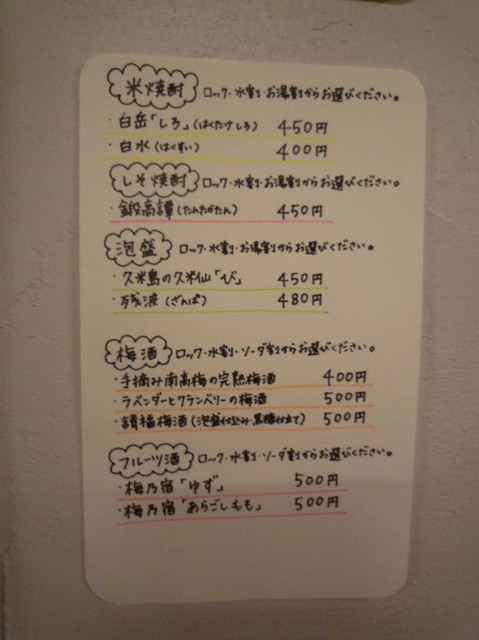 米焼酎 ロック・水割・お湯割からお選びください。
・白岳「しろ」(はくたけしろ) 450円
・白水(はくすい) 400円
しそ焼酎 ロック・水割・お湯割からお選びください。
・鍛高譚(たんたかたん) 450円
泡盛 ロック・水割・お湯割からお選びください。
・久米島の久米仙「び」 450円
・残波(ざんぱ) 480円
梅酒 ロック・水割・ソーダ割からお選びください。
・手摘み南高梅の完熟梅酒 400円
・ラベンダーとクランベリーの梅酒 500円
・請福梅酒(泡盛仕込み・黒糖仕立て) 500円
フルーツ酒 ロック・水割・ソーダ割からお選びください。
・梅乃宿「ゆず」 500円
・梅乃宿「あらごしもも」 500円